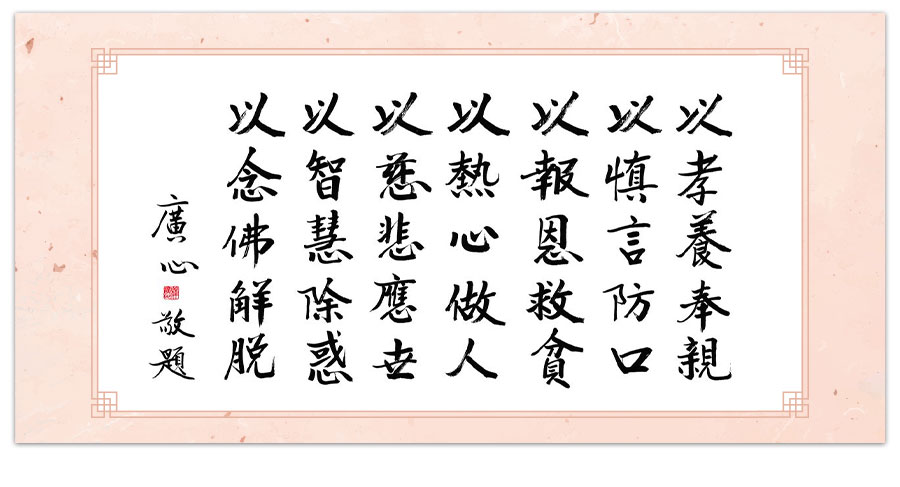 以孝養奉親
以慎言防口
以報恩救貧
以熱心做人
以慈悲應世
以智慧除惑
以念佛解脫
廣心敬題